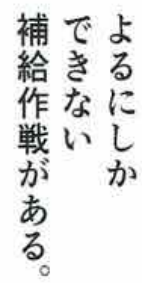 よるにしか
できない
補給作戦がある。